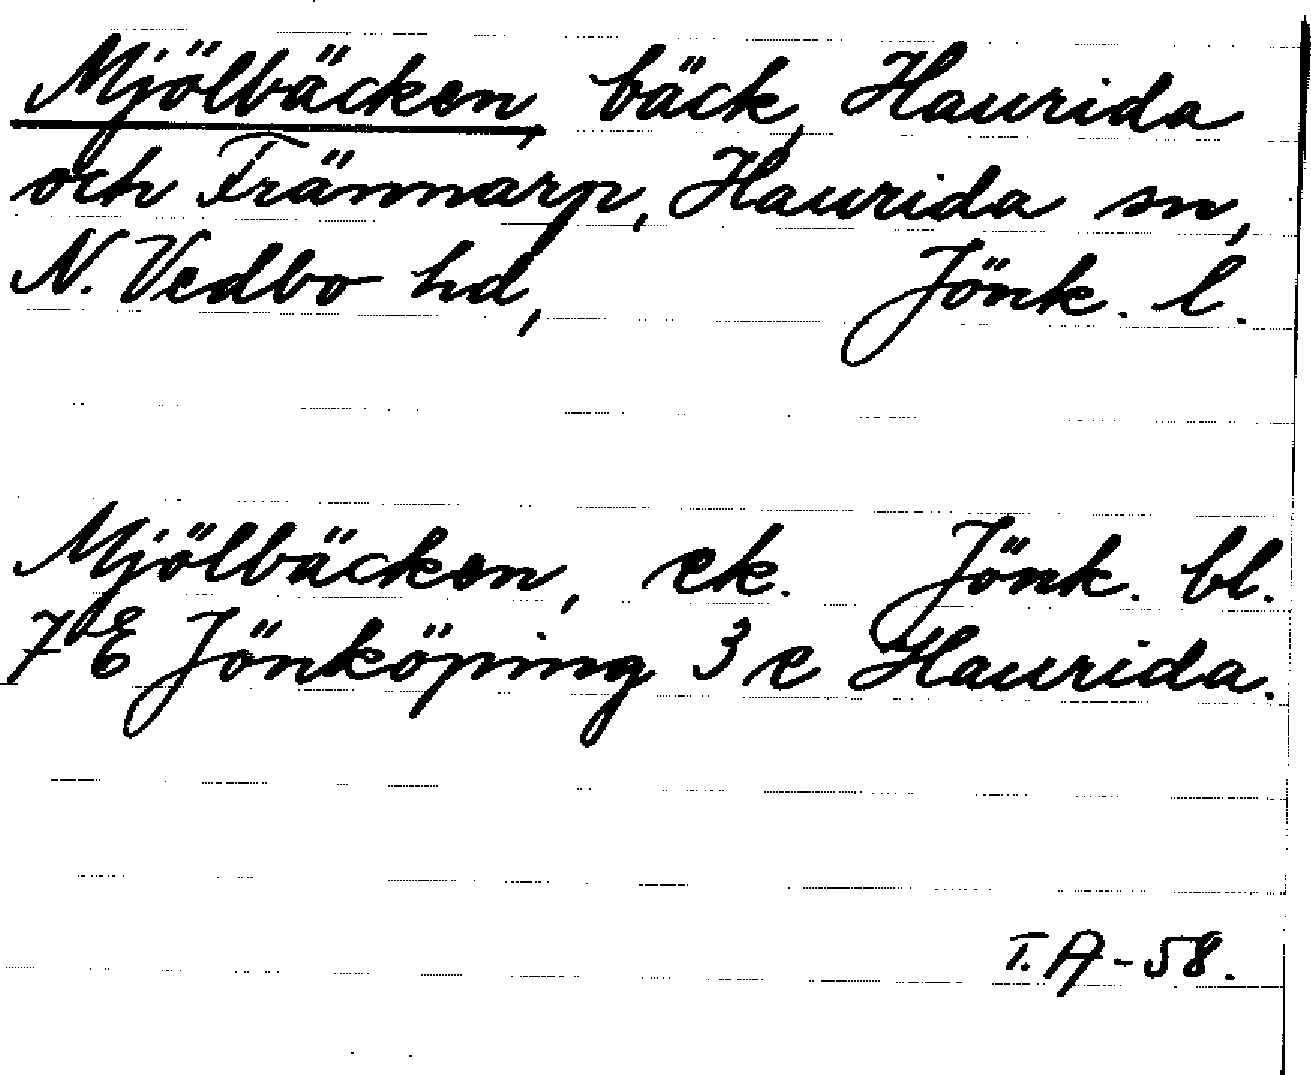 Mjölbäcken, bäck, Haurida
och Trännarp, Haurida sn,
N. Vedbo hd, Jönk. l.
Mjölbäcken, ek. Jönk. bl.
7 E Jönköping 3 e Haurida.
T. A-58.